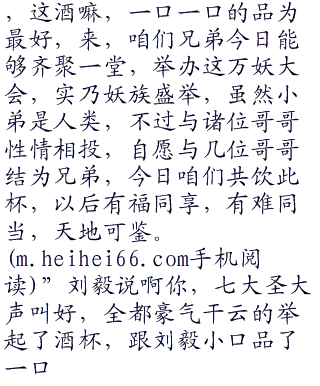 ，这酒嘛，一口一口的品为
最好，来，咱们兄弟今日能
够齐聚一堂，举办这万妖大
会，实乃妖族盛举，虽然小
弟是人类，不过与诸位哥哥
性情相投，自愿与几位哥哥
结为兄弟，今日咱们共饮此
杯，以后有福同享，有难同
当，天地可鉴。
(m.heihei66.com手机阅
读)”刘毅说啊你，七大圣大
声叫好，全都豪气干云的举
起了酒杯，跟刘毅小口品了
一口